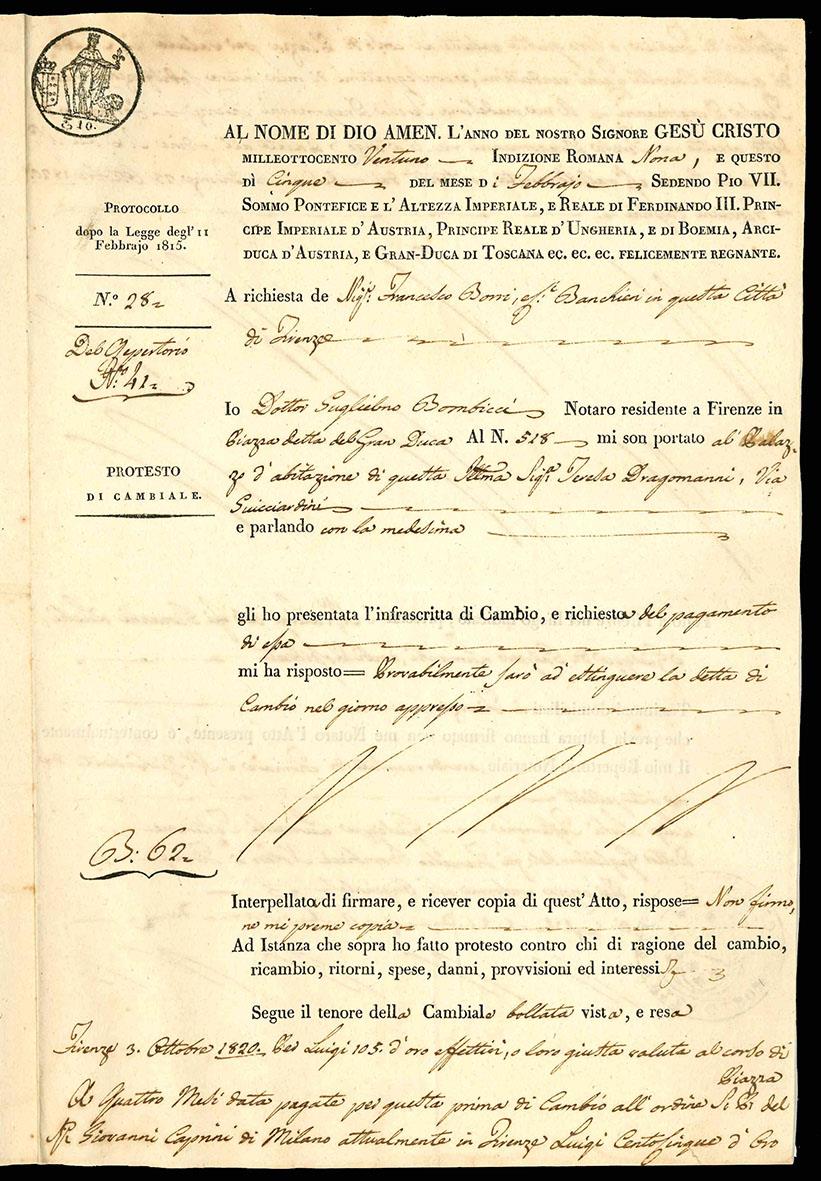 10.
AL NOME DI DIO AMEN. L'ANNO DEL NOSTRO SIGNORE GESÙ CRISTO
MILLEOTTOCENTO Ventuno INDIZIONE ROMANA Nona, E QUESTO
DÌ Cinque DEL MESE Di Febbrajo SEDENDO PIO VII.
SOMMO PONTEFICE E L'ALTEZZA IMPERIALE, E REALE DI FERDINANDO III. PRIN-
CIPE IMPERIALE D'AUSTRIA, PRINCIPE REALE D'UNGHERIA, E DI BOEMIA, ARCI-
DUCA D'AUSTRIA, E GRAN-DUCA DI TOSCANA EC. EC. EC. FELICEMENTE REGNANTE.
PROTOCOLLO
dopo la Legge degl'11
Febbrajo 1815.
N.º 28=
Del Repertorio
Nº. 41=
PROTESTO
DI CAMBIALE.
A richiesta de Sigri. Francesco Borri, e Banchieri in questa Città
di Firenze
Io Dottor Guglielmo Bombicci Notaro residente a Firenze in
Piazza detta del Gran Duca Al N. 518 mi son portato al Palaz-
zo d'abitazione di questa Illma Sigra. Teresa Dragomanni, Via
Guicciardini
e parlando con la medesima
gli ho presentata l'infrascritta di Cambio, e richiesta del pagamento
di essa
mi ha risposto= Provabilmente sarò ad estinguere la detta di
Cambio nel giorno appresso=
B: 62=
Interpellata di firmare, e ricever copia di quest'Atto, rispose= Non firmo,
ne mi preme copia=
Ad Istanza che sopra ho fatto protesto contro chi di ragione del cambio,
ricambio, ritorni, spese, danni, provvisioni ed interessi
Segue il tenore della Cambiale bollata vista, e resa
Firenze 3. Ottobre 1820. Per Luigi 105. d'oro effettivi, o loro giusta valuta al corso di
Piazza
A Quattro Mesi data pagate per questa prima di Cambio all'ordine S. P. del
Sr. Giovanni Caprini di Milano attualmente in Firenze Luigi Centocinque d'Oro